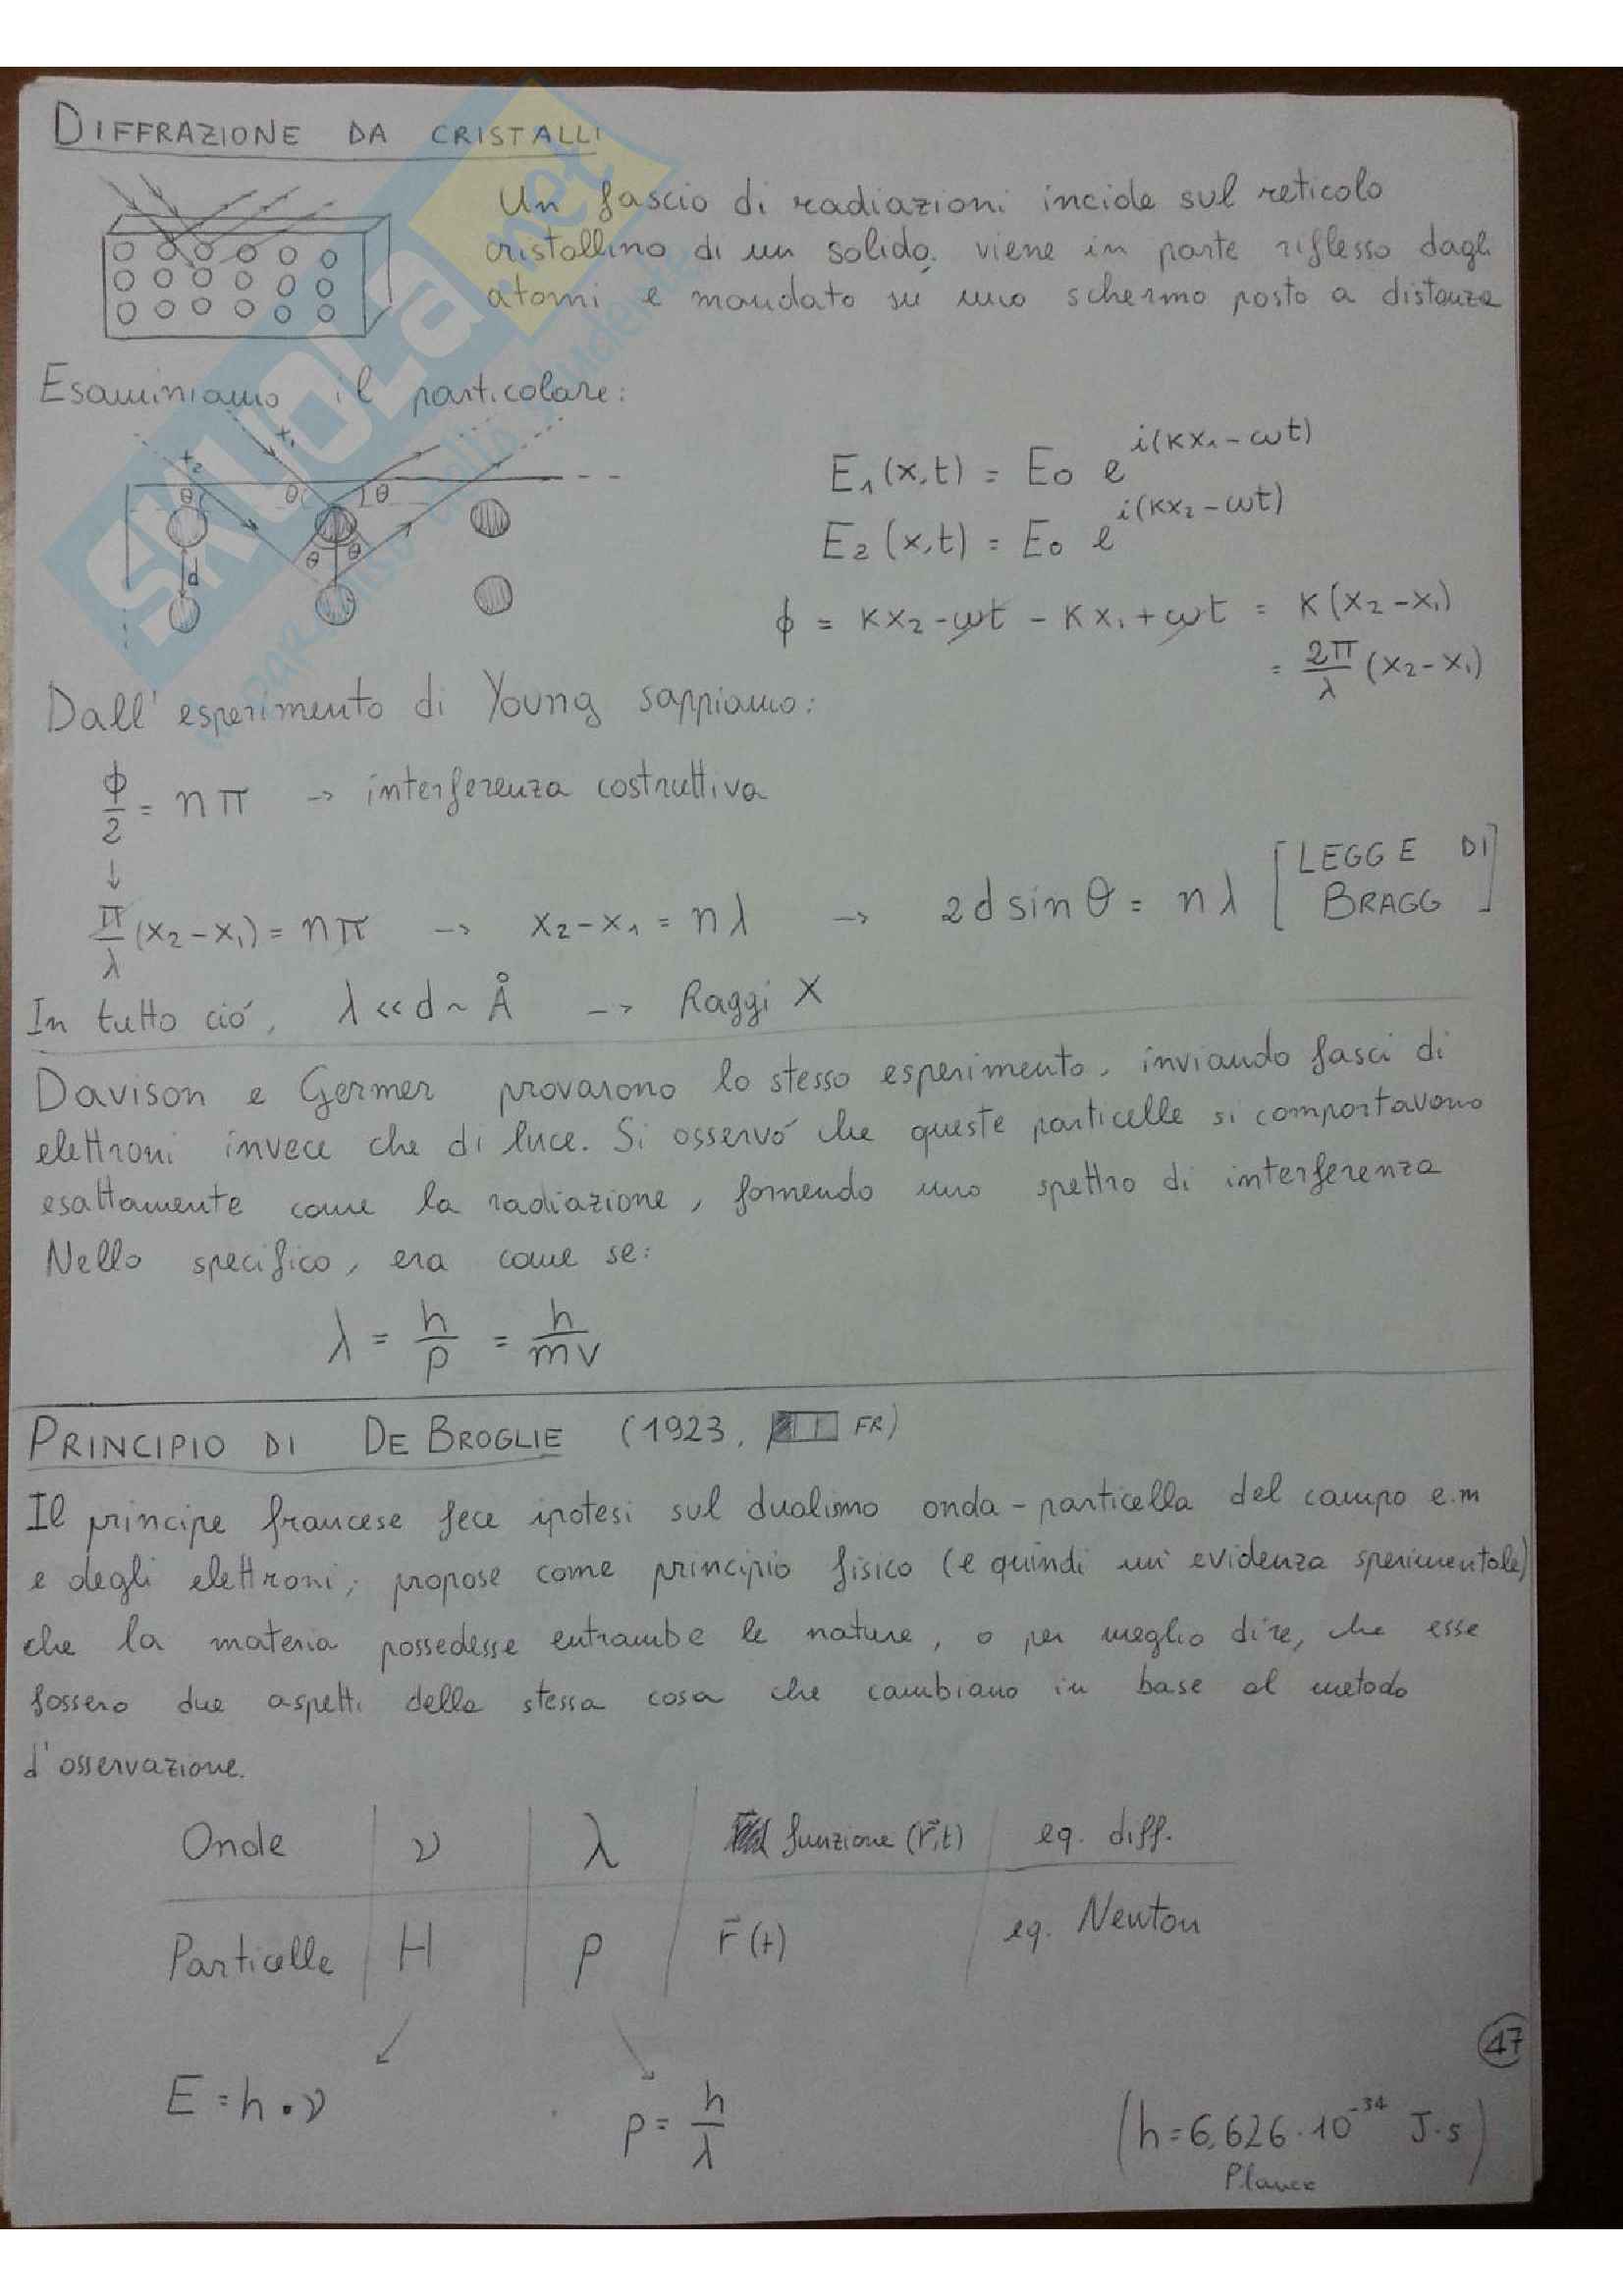 DIFFRAZIONE DA CRISTALLI
Un fascio di radiazioni incide sul reticolo
cristallino di un solido, viene in parte riflesso dagli
atomi e mandato su uno schermo posto a distanza
Esaminiamo il particolare:
x₂ x₁
θ θ θ
θ θ
d
E₁(x,t) = E₀ e^{i(kx₁-ωt)}
E₂(x,t) = E₀ e^{i(kx₂-ωt)}
ϕ = kx₂-ωt - kx₁+ωt = k(x₂-x₁)
= 2π/λ (x₂-x₁)
Dall'esperimento di Young sappiamo:
ϕ/2 = nπ → interferenza costruttiva
↓
π/λ (x₂-x₁) = nπ → x₂-x₁ = nλ → 2d sin θ = nλ [LEGGE DI BRAGG]
In tutto ció, λ << d ~ Å → Raggi X
Davison e Germer provarono lo stesso esperimento, inviando fasci di
elettroni invece che di luce. Si osservó che queste particelle si comportavano
esattamente come la radiazione, fornendo uno spettro di interferenza
Nello specifico, era come se:
λ = h/p = h/mv
PRINCIPIO DI DE BROGLIE (1923, FR)
Il principe francese fece ipotesi sul dualimo onda-particella del campo e.m
e degli elettroni; propose come principio fisico (e quindi un'evidenza sperimentale)
che la materia possedesse entrambe le nature, o per meglio dire, che esse
fossero due aspetti della stessa cosa che cambiano in base al metodo
d'osservazione.
Onde ν λ funzione (r⃗,t) eq. diff.
Particelle H p r⃗(t) eq. Newton
47
E = h·ν p = h/λ (h = 6,626·10⁻³⁴ J·s)
Planck
SKUOLA.net